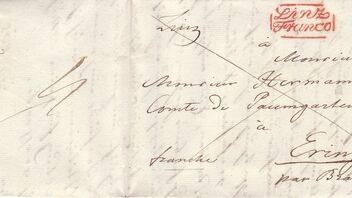 Linz
Franco
Linz
à
Monsieur
Monsieur Hermann
Comte de Paumgarten
à
Ering
franche
par Bra